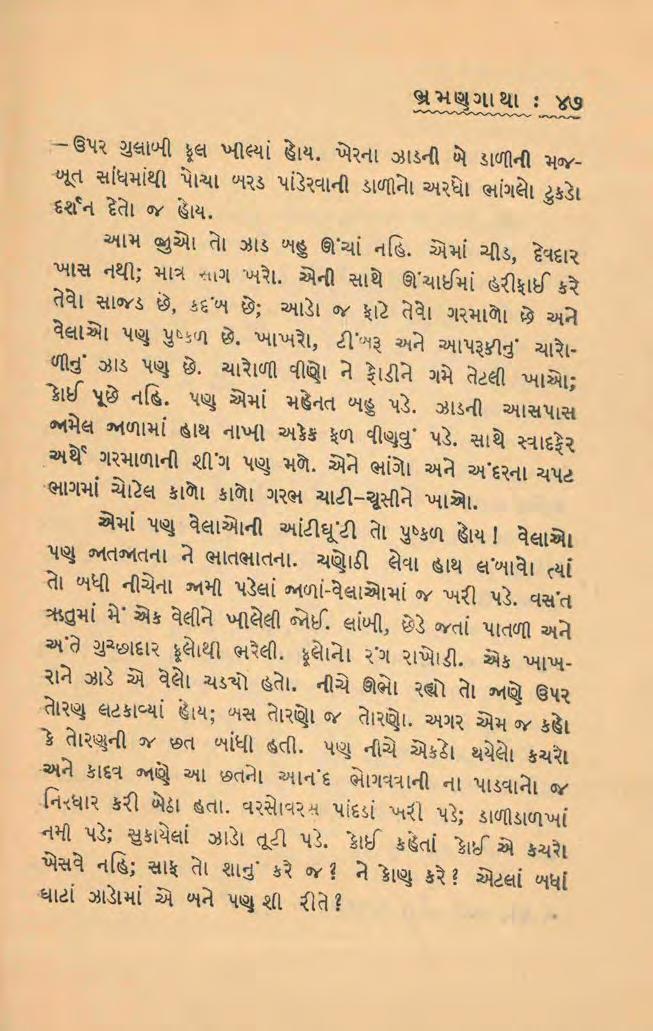 ભ્રમણગાથા : ૪૭
—ઉપર ગુલાબી ફૂલ ખીલ્યાં હોય. ખેરના ઝાડની બે ડાળીની મજ-
બૂત સાંધમાંથી પોચા બરડ પાંડેરવાની ડાળીનો અરધો ભાંગલો ટુકડો
દર્શન દેતો જ હોય.
આમ જુઓ તો ઝાડ બહુ ઊંચાં નહિ. એમાં ચીડ, દેવદાર
ખાસ નથી; માત્ર સાગ ખરો. એની સાથે ઊંચાઈમાં હરીફાઈ કરે
તેવો સાજડ છે, કદંબ છે; આડો જ ફાટે તેવો ગરમાળો છે અને
વેલાઓ પણ પુષ્કળ છે. ખાખરો, ટીંબરૂ અને આપરૂકીનું ચારો-
ળીનું ઝાડ પણ છે. ચારોળી વીણો ને ફોડીને ગમે તેટલી ખાઓ;
કોઈ પૂછે નહિ. પણ એમાં મહેનત બહુ પડે. ઝાડની આસપાસ
જામેલ જાળામાં હાથ નાખી અકેક ફળ વીણવું પડે. સાથે સ્વાદફેર
અર્થે ગરમાળાની શીંગ પણ મળે. એને ભાંગો અને અંદરના ચપટ
ભાગમાં ચોટેલ કાળો કાળો ગરભ ચાટી–ચૂસીને ખાઓ.
એમાં પણ વેલાઓની આંટીઘૂંટી તો પુષ્કળ હોય! વેલાઓ
પણ જાતજાતના ને ભાતભાતના. ચણોઠી લેવા હાથ લંબાવો ત્યાં
તો બધી નીચેના જામી પડેલાં જાળાં-વેલાઓમાં જ ખરી પડે. વસંત
ઋતુમાં મેં એક વેલીને ખીલેલી જોઈ. લાંબી, છેડે જતાં પાતળી અને
અંતે ગુચ્છાદાર ફૂલોથી ભરેલી. ફૂલોનો રંગ રાખોડી. એક ખાખ-
રાને ઝાડે એ વેલો ચડચો હતો. નીચે ઊભો રહ્યો તો જાણે ઉપર
તોરણ લટકાવ્યાં હોય; બસ તોરણો જ તોરણો. અગર એમ જ કહો
કે તોરણની જ છત બાંધી હતી. પણ નીચે એકઠો થયેલો કચરો
અને કાદવ જાણે આ છતનો આનંદ ભોગવવાની ના પાડવાનો જ
નિરધાર કરી બેઠા હતા. વરસોવરસ પાંદડાં ખરી પડે; ડાળીડાળખાં
નમી પડે; સુકાયેલાં ઝાડો તૂટી પડે. કોઈ કહેતાં કોઈ એ કચરો
ખેસવે નહિ; સાફ તો શાનું કરે જ? ને કોણ કરે? એટલાં બધાં
ઘાટાં ઝાડોમાં એ બને પણ શી રીતે?